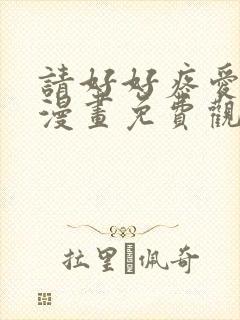 請好好疼愛
漫畫免費觀
拉里�佩奇